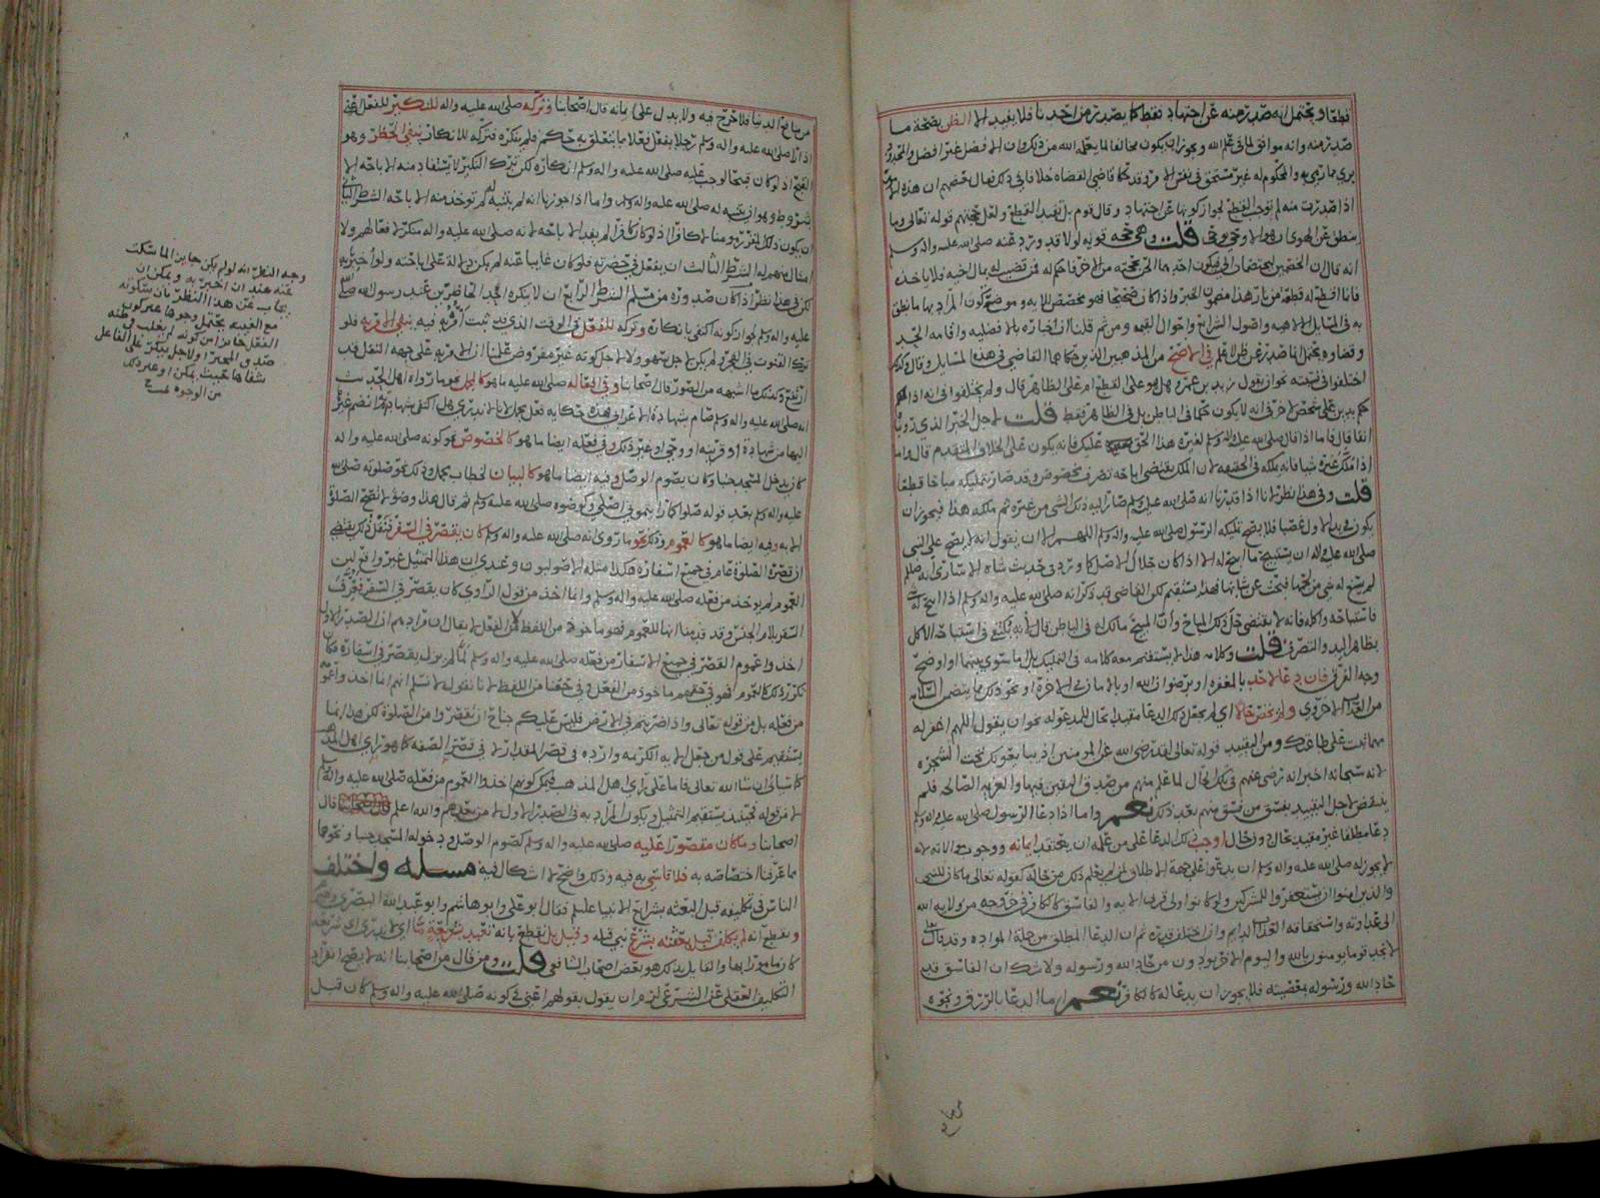 قطعا ويحتمل انه صدر منه عن اجتهاد فقط كما يصدر من احدنا فلا يفيد الا الظن بصحة ما
صدر منه وانه موافق لما في علم الله ويجوز ان يكون مخالفا لما يعلمه الله من ذلك وان الافضل غير افضل
والمحكوم له غير مستحق في نفس الامر وقد حكا قاضي القضاه خلافا في ذلك فقال بعضهم ان هذه
اذا صدرت منه لم توجب القطع لجواز كونها عن اجتهاد وقال قوم بل تفيد القطع ولعل حجتهم قوله تعالى وما
ينطق عن الهوى ان هو الا وحي يوحى قلت وهي حجه قويه لولا قد ورد عنه صلى الله عليه واله وسلم
انه قال ان الخصمين يختصمان الي فيكون احدهما الحن بحجته من الاخر فاحكم له فمن قضيت له بمال اخيه فلا ياخذه
فانما اقطع له قطعة من نار هذا مضمون الخبر واذا كان صحيحا فهو مخصص للايه وموضح كون المراد بها ما نطق
به في المسايل الالهيه واصول الشرايع واحوال القيمه ومن ثم قلنا ان اخباره بالافضليه واقامه الحد
وقضاوه يحتمل انما صدر عن ظن لا علم في الاصح من المذهبين الذين حكاهما القاضي في هذه المسايل وقال وكذلك
اختلفوا في نحو ان يقول زيد بن عمرو هل هو على القطع ام على الظاهر قال ولم يختلفوا في انه اذا
حكم بدين على شخص لاخر في انه لا يكون حكما في الباطن بل في الظاهر فقط قلت لاجل الخبر الذي روينا
انفا قال فاما اذا قال صلى الله عليه واله وسلم لغيره هذا الحق عليك فانه يكون على الخلاف المتقدم قال واما
اذا ملك غيره شيا فانه يملكه في الحقيقه لان الملك يقتضي اباحه تصرف مخصوص وقد صار تمليكه مباحا قطعا
قلت وفي هذا نظر لانا اذا قدرنا انه صلى الله عليه واله وسلم صار اليه ذلك الشي من غيره ثم ملكه هذا فيجوز ان
يكون في يد الاول غصبا فلا يصح تمليكه الرسول صلى الله عليه واله وسلم اللهم الا ان يقول انه لا يصح على النبي
صلى الله عليه واله ان يستبيح ما ابيح له الا اذا كان حلال الاصل كما ورد في حديث شاه الاسارى
فاستباحه واكله فانه لا يقتضي حل ذلك المباح وان المبيح مالك له في الباطن قال لانه يكتفى في استباحه الاكل
بظاهر اليد والتصرف قلت وكلامه هذا لا يستقيم معه كلامه في التمليك بل ما سوى بينهما او اوضح
وجه الفرق فان دعا لاحد بالمغفره او برضوان الله او بالامان في الاخره او نحو ذلك مما يتضمن السلامه
من العذاب الاخروي ولم تختص حالا اي لم يجعل ذلك الدعا مقيدا بحال للمدعو له نحو ان يقول اللهم اغفر له
مهما ثبت على طاعتك ومن التقييد قوله تعالى لقد رضي الله عن المومنين اذ يبايعونك تحت الشجره
لانه سبحانه اخبر انه رضي عنهم في تلك الحال لما علم منهم من صدق اليقين فيها والعزيمه الصالحه فلم
ينقض لاجل التقييد بفسق من فسق منهم بعد ذلك نعم واما اذا دعا الرسول صلى الله عليه واله وسلم
دعا مطلقا غير مقيد بحال دون حال اوجب ذلك الدعا على من علمه ان يعتقد ايمانه ووجوب موالاته لانه
لا يجوز له صلى الله عليه واله وسلم ان يدعو على جهة الاطلاق لمن لم يعلم ذلك من حاله لقوله تعالى ما كان للنبي
والذين امنوا ان يستغفروا للمشركين ولو كانوا اولي قربى الايه والفاسق كالكافر في خروجه من ولايه الله
الى عداوته واستحقاقه العذاب الدايم وان اختلف قدره ثم ان الدعا المطلق من جملة الموادة وقد قال تعالى
لا تجد قوما يومنون بالله واليوم الاخر يوادون من حاد الله ورسوله ولا شك ان الفاسق قد
حاد الله ورسوله بمعصيته فلا يجوز ان يدعا له كالكافر نعم اما الدعا بالرزق ونحوه
من منافع الدنيا فلا حرج فيه ولا يدل على ايمانه قال اصحابنا وتركه صلى الله عليه واله للنكير للفعل
اذا راى صلى الله عليه واله وسلم رجلا يفعل فعلا مما يتعلق به حكم فلم ينكره فتركه للانكار ينفي الحظر وهو
القبح اذ لو كان قبيحا لوجب عليه صلى الله عليه واله وسلم انكاره لكن ترك النكير لا يستفاد منه الاباحه الا
بشروط
ان يكون ذلك المقرر مومنا لا كافرا اذ لو كان كافرا لم يفد الاباحه لانه صلى الله عليه واله منكر لافعالهم ولا
امتثال منهم له الشرط الثالث ان يفعل في حضرته فلو كان غايبا عنه لم يكن دلالة على اباحته ولو اخبر به
لكن في هذا نظر اذا كان صدوره من مسلم الشرط الرابع ان لا ينكره احد الحاضرين عند رسول الله صلى
عليه واله وسلم لجواز كونه اكتفى بانكاره وتركه للفعل في الوقت الذي قد ثبت امر به فيه ينفي الامر به فلو
ترك القنوت في الفجر ولم يكن لاجل سهو ولا لاجل كونه غير مفروض علمنا ان الامر به على جهه النفل قد
ارتفع وكذلك ما اشبهه من الصور قال اصحابنا وفي افعاله صلى الله عليه ما هو كالمجمل نحو ما رواه اهل الحديث
انه صلى الله عليه واله وسلم صام بشهادة الاعرابي فهذه حكايه فعل مجمل لانا لا ندري هل اكتفى بشهادته او انضم غيره
اليها من شهادة او قرينه او وحي او غير ذلك وفي فعله ايضا ما هو كالخصوص نحو كونه صلى الله عليه واله
كان يدخل المسجد جنبا وكان يصوم الوصل وفيه ايضا ما هو كالبيان لخطاب مجمل وذلك نحو صلوته صلى الله
عليه واله وسلم بعد قوله صلوا كما رايتموني اصلي وكوضوه صلى الله عليه واله وسلم ثم قال هذا وضوء لا تصح الصلوة
الا به وفيه ايضا ما هو كالعموم وذلك نحو ما روي انه صلى الله عليه واله وسلم كان يقصر في السفر فنقل ذلك يقتضي
ان قصره الصلوة عام في جميع اسفاره هكذا مثله الاصوليون وعندي ان هذا التمثيل غير واقع لان
العموم لم يوخذ من فعله صلى الله عليه واله وسلم وانما اخذ من قول الراوي كان يقصر في السفر فعرف
السفر بلام الجنس وقد قدمنا انها للعموم فهو ماخوذ من اللفظ لا من الفعل لا يقال ان مرادهم ان الصدر الاول
اخذوا عموم القصر في جميع الاسفار من فعله صلى الله عليه واله وسلم لما لم يزل يقصر في اسفاره فكان
تكرر ذلك كالعموم فهو في حقهم ماخوذ من الفعل وفي حقنا من اللفظ لانا نقول لا نسلم انهم انما اخذوا عمومه
من فعله بل من قوله تعالى واذا ضربتم في الارض فليس عليكم جناح ان تقصروا من الصلوة لكن هذا انما
يستقيم على قول من جعل الايه الكريمه وارده في قصر المقدار لا في قصر الصفه كما هو راي اهل المذهب
كما سياتي ان شا الله تعالى فاما على راي اهل المذهب فيمكن كونهم اخذوا العموم من فعله صلى الله عليه واله
لا من قوله فحينئذ يستقيم التمثيل ويكون المراد به في الصدر الاول لا من بعدهم والله اعلم قال
اصحابنا وما كان مقصورا عليه صلى الله عليه واله وسلم كصوم الوصل ودخوله المسجد جنبا ونحوهما
مما عرفنا اختصاصه به فلا تاسي به فيه وذلك واضح لا اشكال فيه مسله واختلف
الناس في تكليفه قبل البعثه بشرايع الانبيا عليهم فقال ابو علي وابو هاشم وابو عبد الله البصري
ونقطع انه لم يكلف قبل بعثته بشرع نبي قبله وقيل بل نقطع بانه تعبد بشريعة ما اي لا ندري اي شريعه
كان مامورا بها والقايل بذلك هو بعض اصحاب الشافعي قلت ومن قال من اصحابنا انه لا يصح انفراد
التكليف العقلي عن الشرعي لزمه ان يقول بقولهم اعني في كونه صلى الله عليه واله وسلم كان قبل
وجه النظر انه لو لم يكن جايزا لما سكت
عنه عند ان اخبر به ويمكن ان
يجاب عن هذا النظر بان سكوته
مع الغيبه يحتمل وجوها غير كون
الفعل جايزا من كونه لم يغلب في ظنه
صدق المخبر او لاجل ينكر على الفاعل
شفاها بحيث يمكن او غير ذلك
من الوجوه